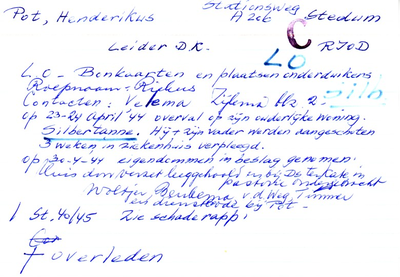 Pot, Henderikus Stationsweg Stedum
A 206 C
Leider D.K. RJOD
LO
L.O - Bonkaarten en plaatsen onderduikers
Roepnaam: Rijkus
Contacten: Velema blz 2
op 23-24 april '44 overval op zijn ouderlijke woning.
Silbertanne. Hij + zijn vader werden aangeschoten
3 weken in ziekenhuis verpleegd.
op 30-4-44 eigendommen in beslag genomen.
Huis door verzet leeggehaald en bij De te
pastorie ondergebracht
Woltjer, Beukema v.d Weg, Timmer
en dienstbode bij Pot.
1 St. 40/45 Zie schaderapp:
† overleden